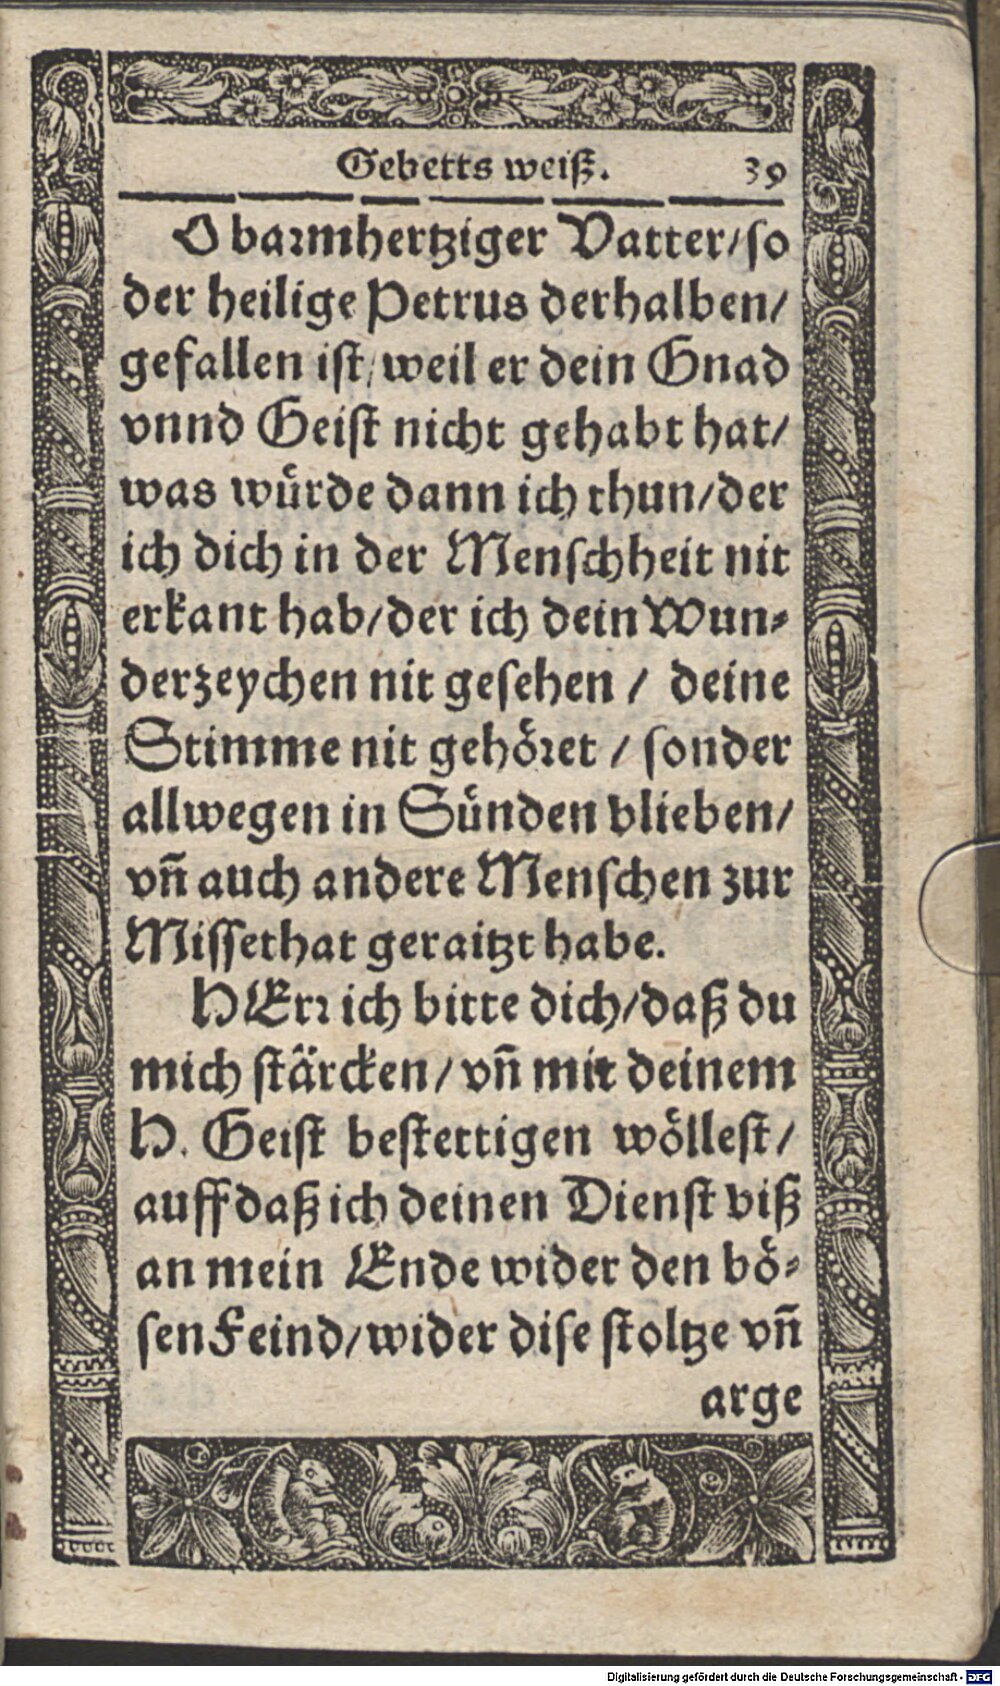 Gebetts weiß. 39
O barmhertziger Vatter/so
der heilige Petrus derhalben/
gefallen ist/ weil er dein Gnad
vnnd Geist nicht gehabt hat/
was wuͤrde dann ich thun/der
ich dich in der Menschheit nit
erkant hab/der ich dein Wun⸗
derzeychen nit gesehen / deine
Stimme nit gehoͤret / sonder
allwegen in Suͤnden blieben/
vñ auch andere Menschen zur
Missethat geraitzt habe.
HErr ich bitte dich/daß du
mich staͤrcken/ vñ mit deinem
H. Geist bestettigen woͤllest/
auff daß ich deinen Dienst biß
an mein Ende wider den boͤ⸗
sen Feind/wider dise stoltze vñ
arge
Digitalisierung gefördert durch die Deutsche Forschungsgemeinschaft - DFG